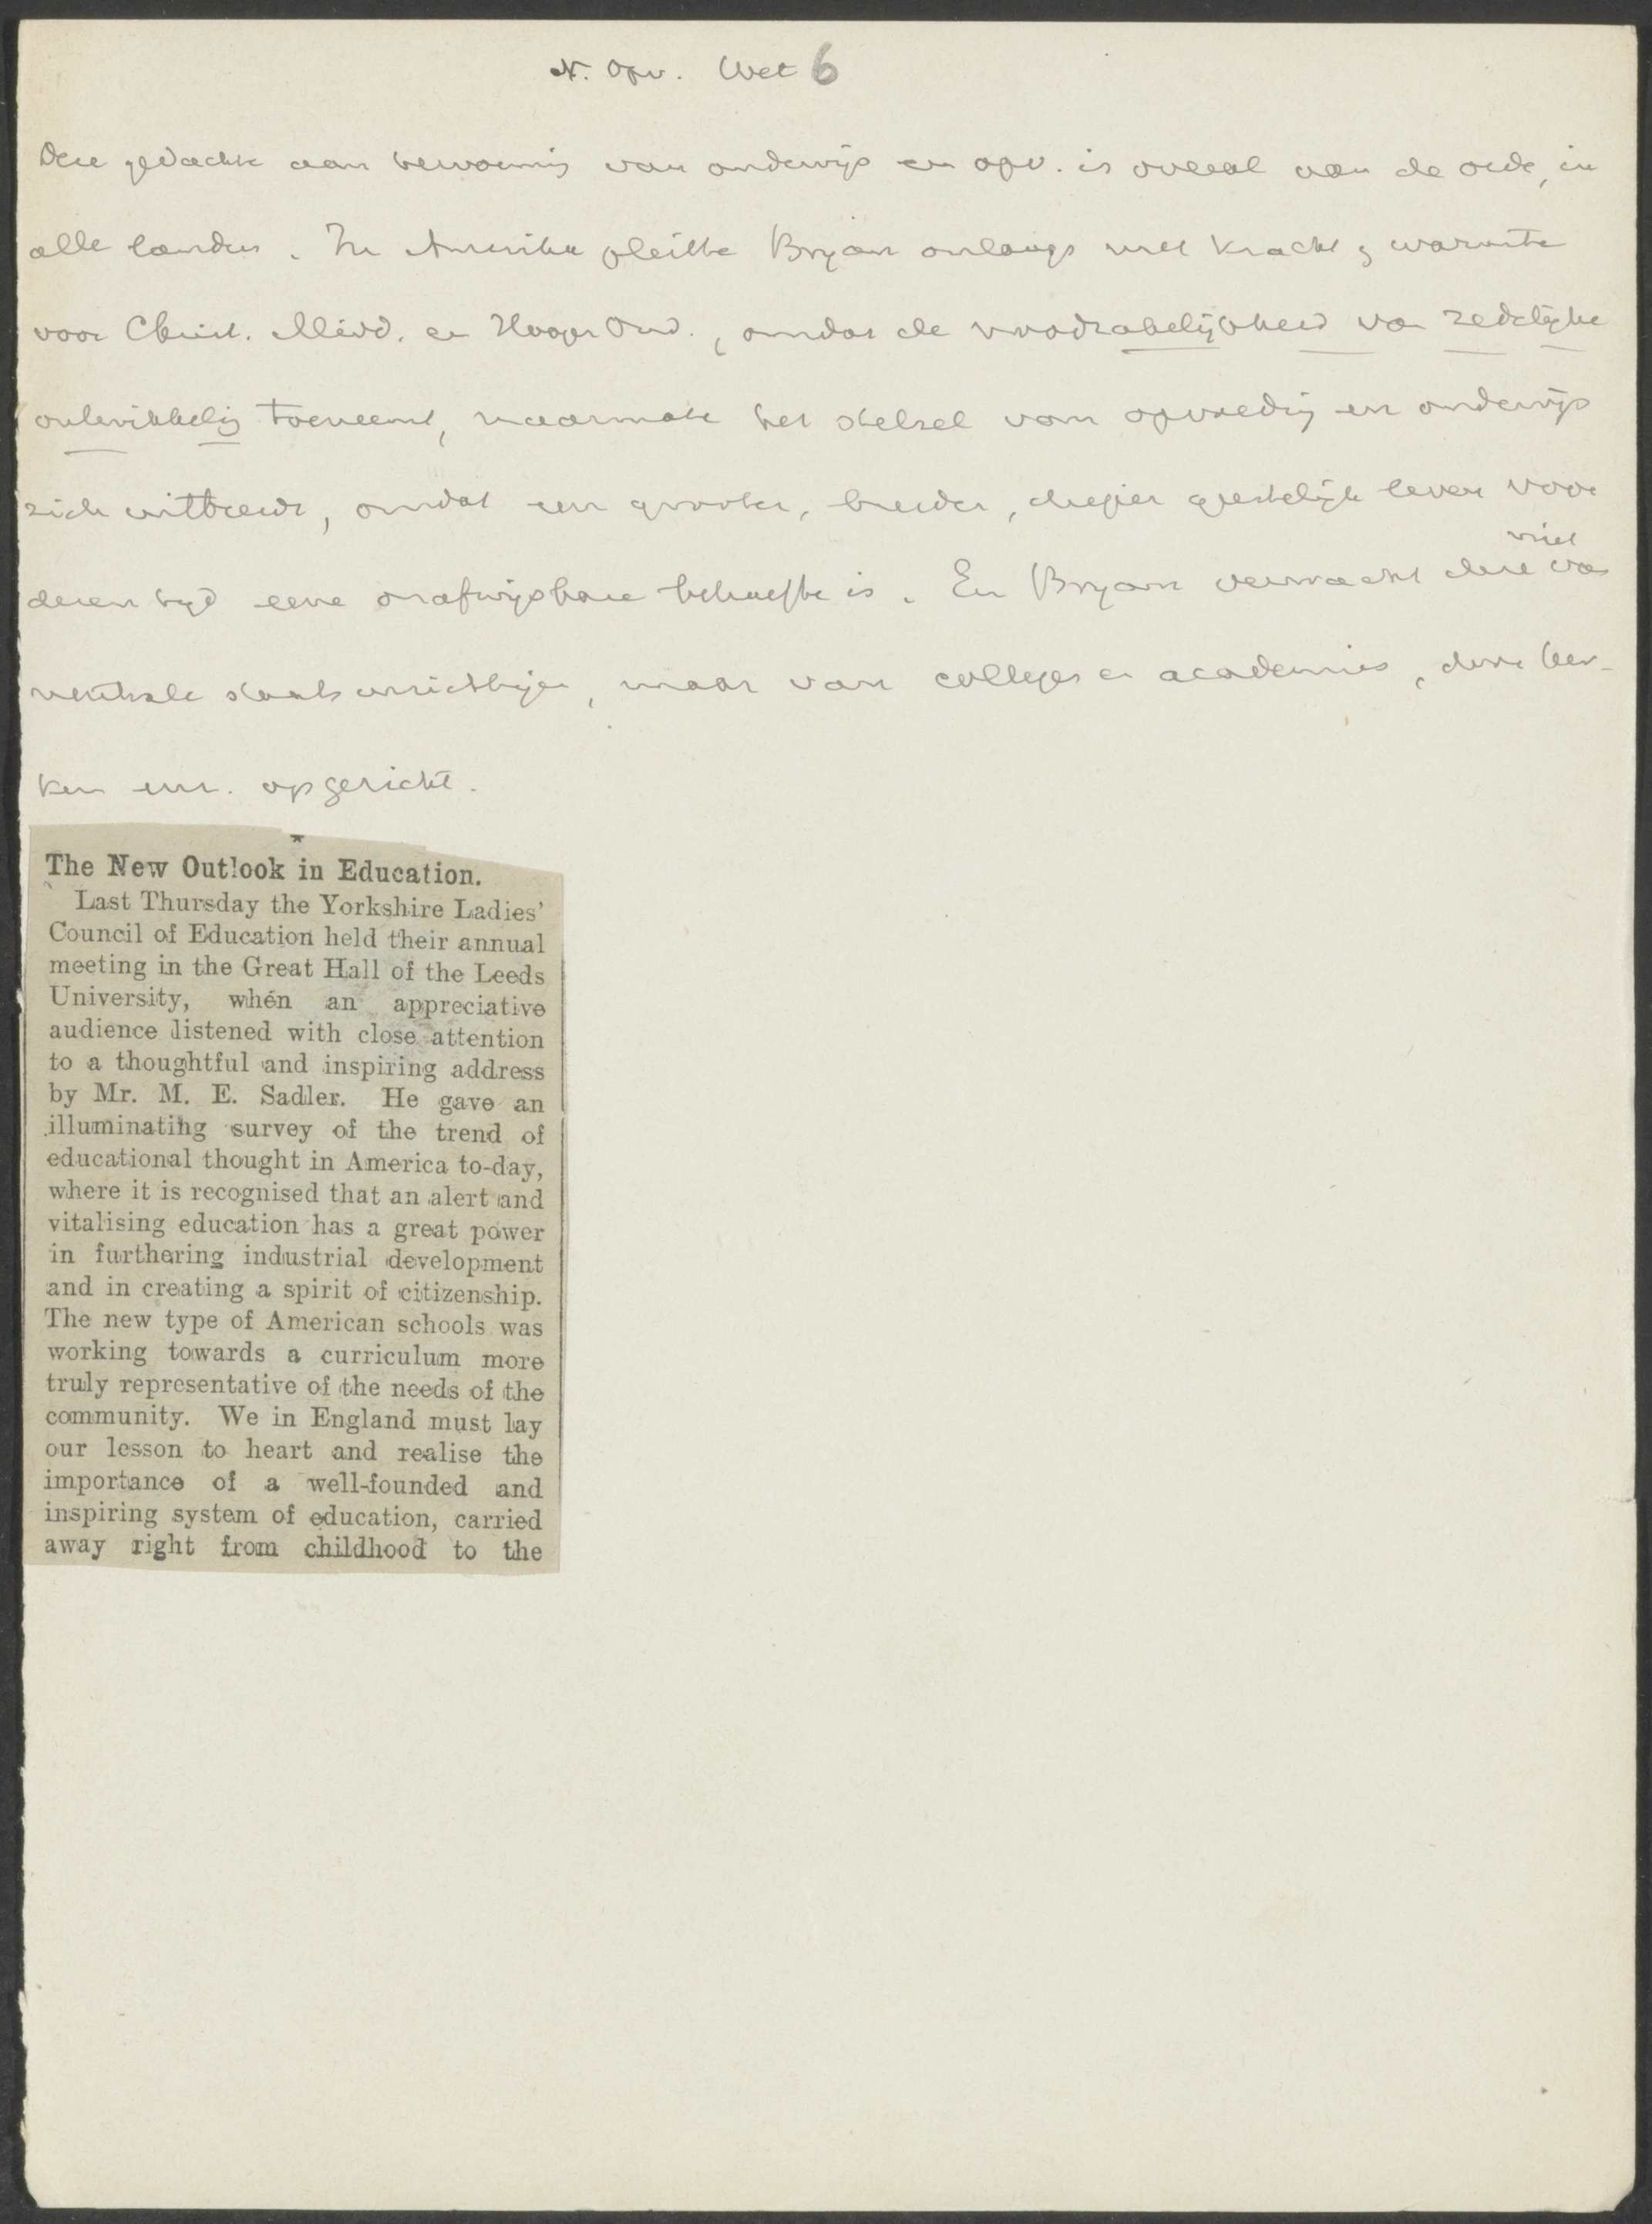 N. Opv. Wet 6
Deze gedachte aan hervorming van onderwijs en opv. is overal aan de orde, in
alle landen. In Amerika pleitte Bryan onlangs met kracht & warmte
voor Christ. Midd. en Hooger Ond., omdat de noodzakelijkheid van zedelijke
ontwikkeling toeneemt, naarmate het stelsel van opvoeding en onderwijs
zich uitbreidt, omdat een grooter, breeder, dieper geestelijk leven voor
dezen tijd eene onafwijsbare behoefte is. En Bryan verwacht deze niet van
neutrale staatsinrichtingen, maar van colleges en academies, door ker-
ken enz. opgericht.
The New Outlook in Education.
Last Thursday the Yorkshire Ladies'
Council of Education held their annual
meeting in the Great Hall of the Leeds
University, when an appreciative
audience listened with close attention
to a thoughtful and inspiring address
by Mr. M. E. Sadler. He gave an
illuminating survey of the trend of
educational thought in America to-day,
where it is recognised that an alert and
vitalising education has a great power
in furthering industrial development
and in creating a spirit of citizenship.
The new type of American schools was
working towards a curriculum more
truly representative of the needs of the
community. We in England must lay
our lesson to heart and realise the
importance of a well-founded and
inspiring system of education, carried
away right from childhood to the